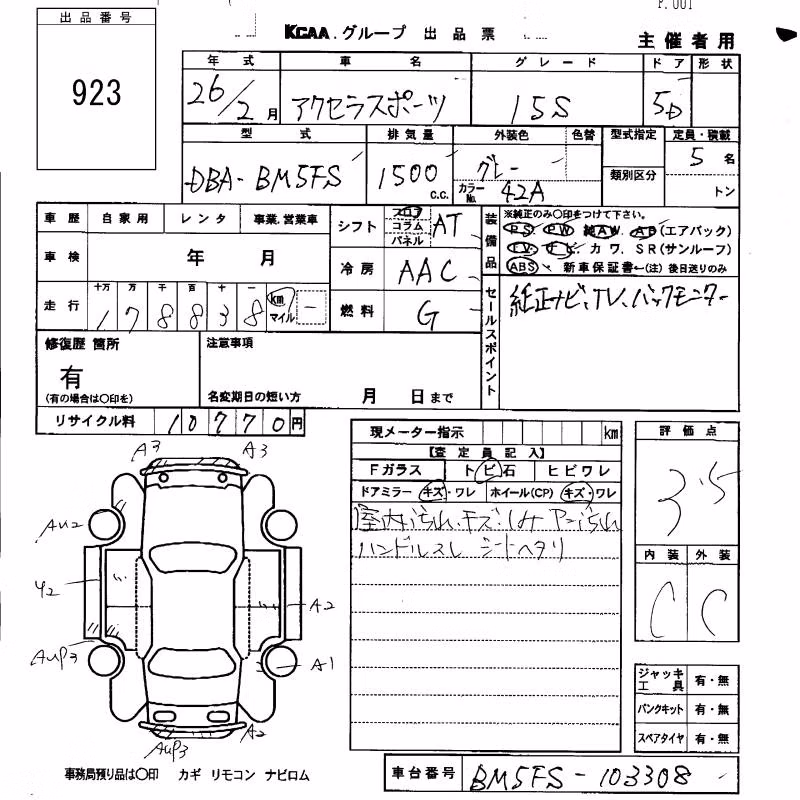 P.001
出品番号
923
KCAA.グループ 出品票
主催者用
年式 車名 グレード ドア 形状
26/2月 アクセラスポーツ 15S 5D
型式 排気量 外装色 色替 型式指定 定員・積載
DBA-BM5FS 1500 c.c. グレー 類別区分 5名
カラーNo. 42A トン
車歴 自家用 レンタ 事業.営業車
車検 年 月
走行 十万 万 千 百 十 一
178838 km マイル
シフト フロア コラム パネル AT
冷房 AAC
燃料 G
装備品
※純正のみ○印をつけて下さい。
PS. PW 純AW. AB(エアバック)
TV. ナビ. カワ. SR(サンルーフ)
ABS 新車保証書←(注) 後日送りのみ
セールスポイント
純正ナビ、TV、バックモニター
修復歴 箇所
有
(有の場合は○印を)
注意事項
名変期日の短い方 月 日まで
リサイクル料 10770円
現メーター指示 km
【査定員記入】
Fガラス トビ石 ヒビワレ
ドアミラー キズ・ワレ ホイール(CP) キズ・ワレ
室内汚れ、キズ、
ハンドルスレ シートヘタリ
評価点
3.5
内装 外装
C C
A3 A3
AU2
Y2
A2
AUP3
A1
AUP3
A2
ジャッキ工具 有・無
パンクキット 有・無
スペアタイヤ 有・無
事務局預り品は○印 カギ リモコン ナビロム
車台番号 BM5FS-103308